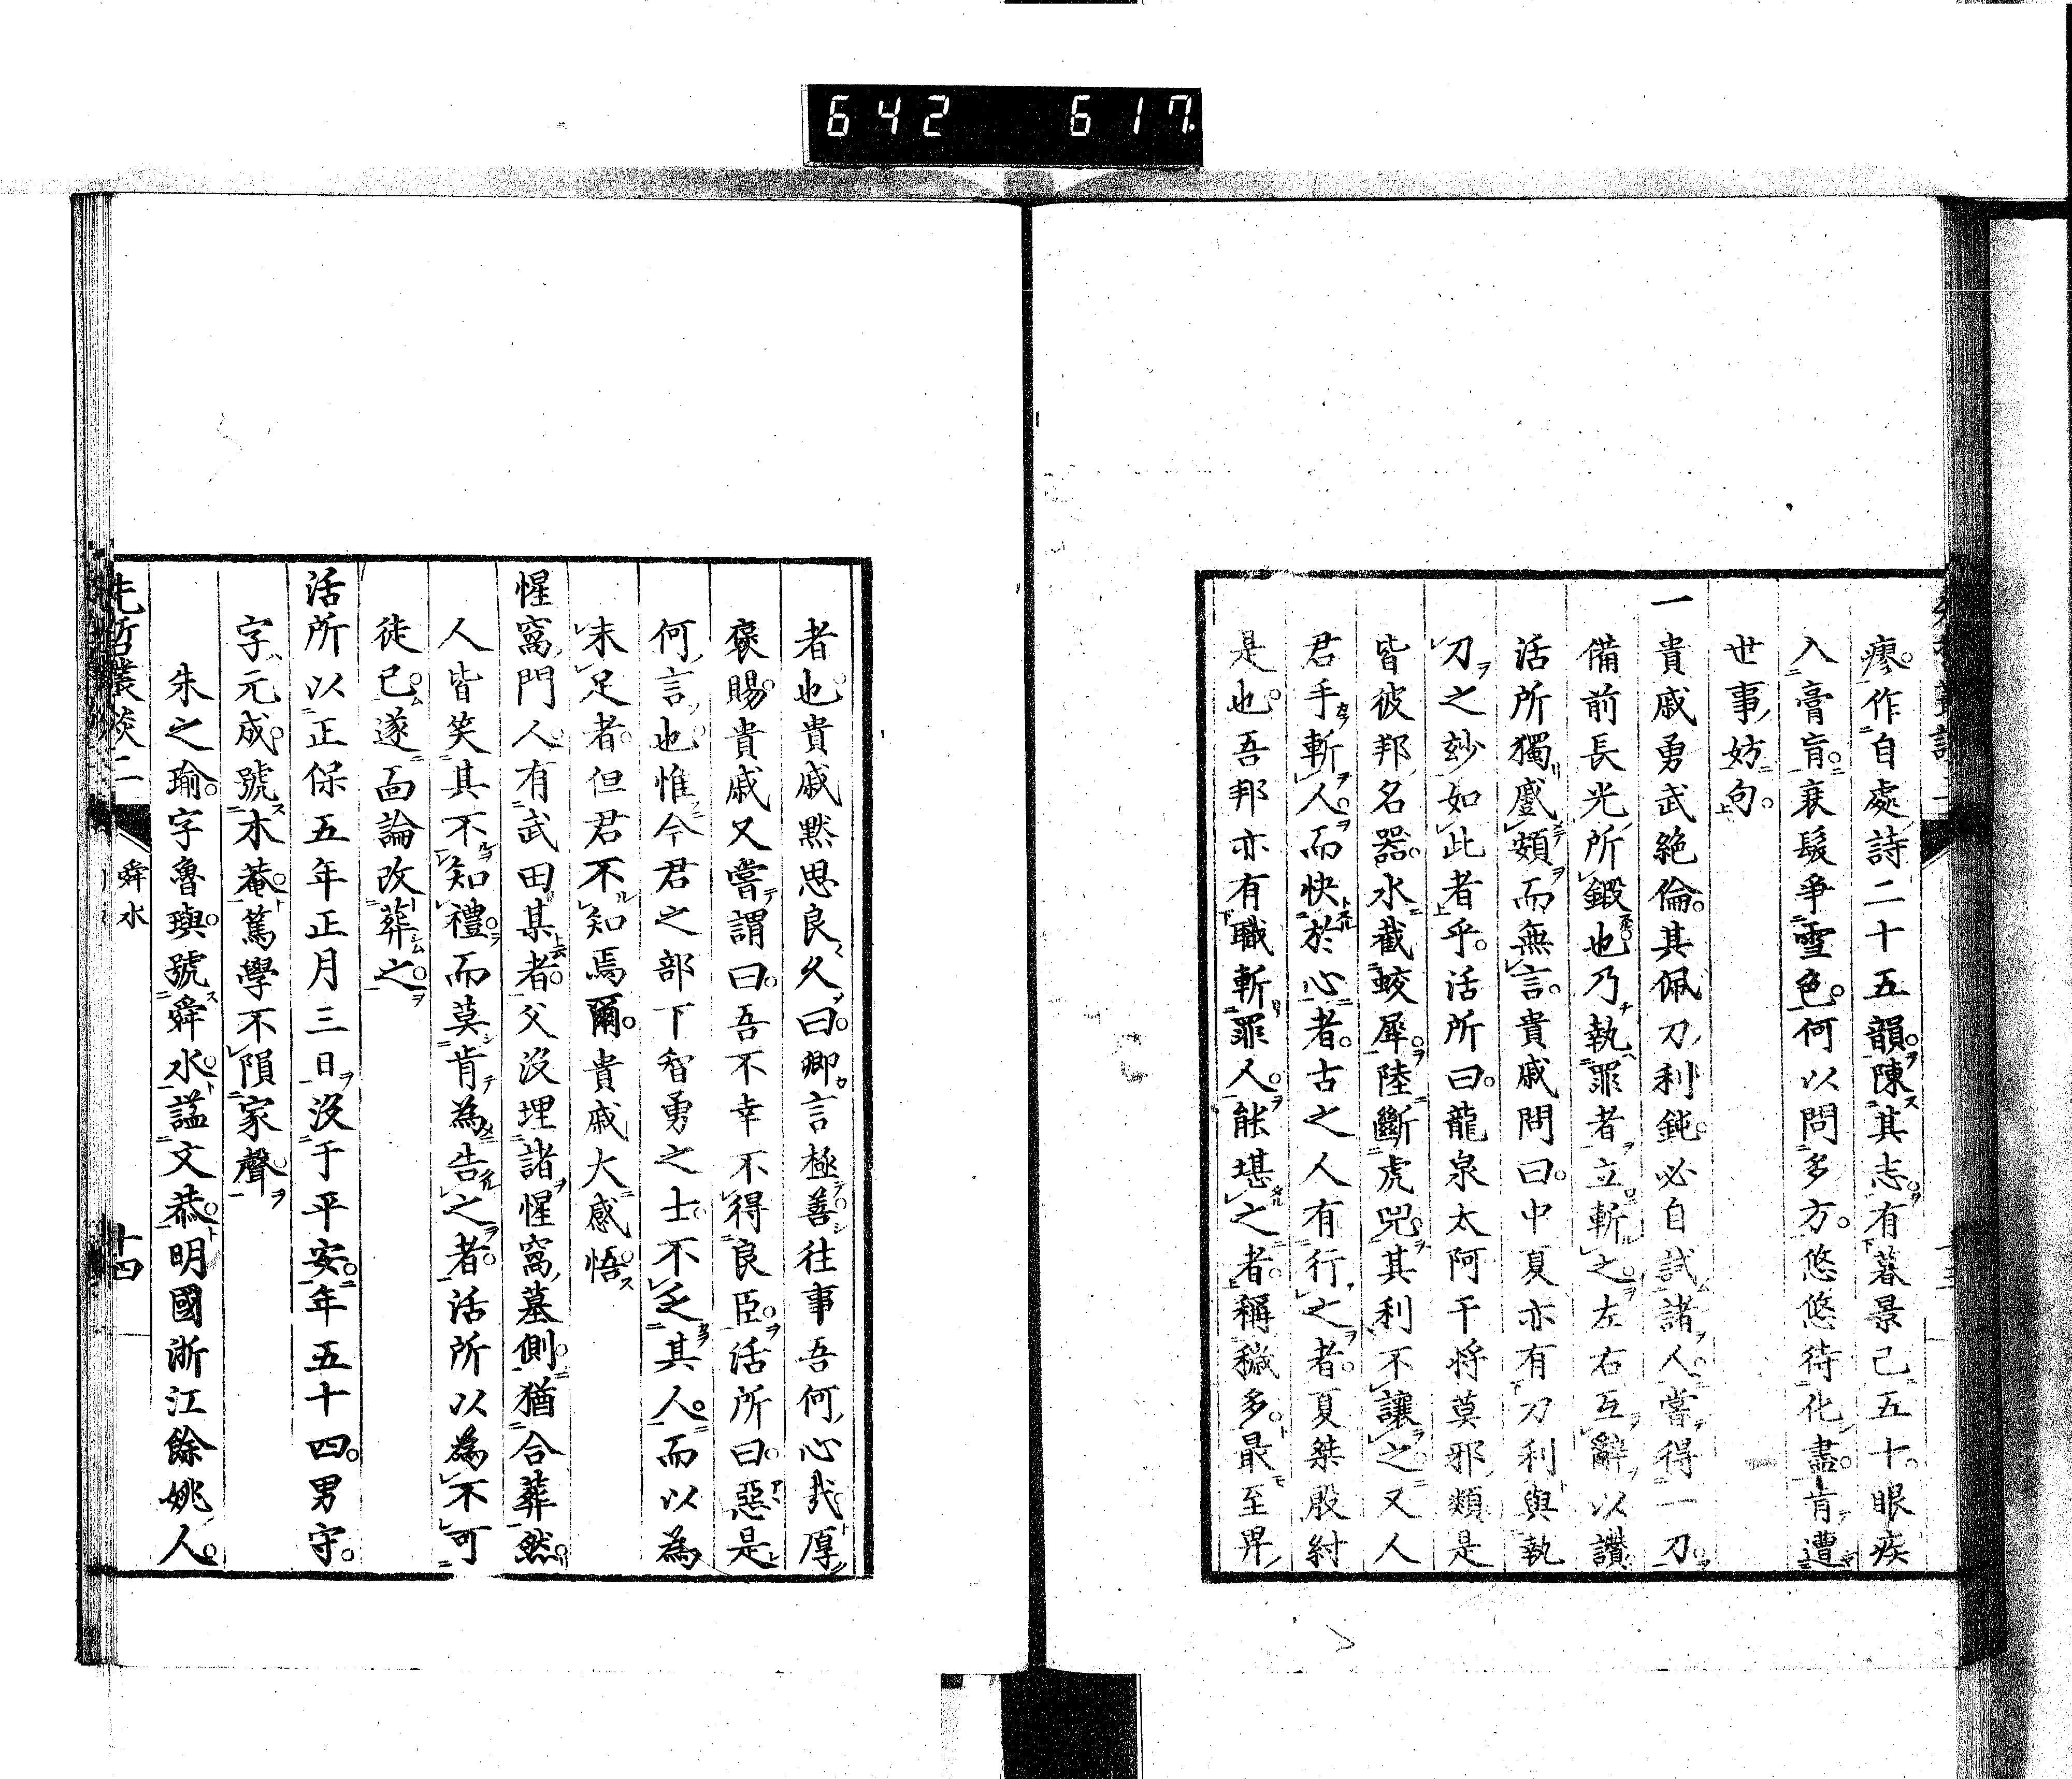 642 617
瘳作自處詩二十五韻陳其志有暮景已五十眼疾
入膏肓衰髮爭雪色何以問多方悠悠待化盡肯遭
世事妨句
一貴戚勇武絶倫其佩刀利鈍必自試諸人嘗得一刀
備前長光所鍛也乃執罪者立斬之左右互辭以讚
活所獨蹙頞而無言貴戚問曰中夏亦有刀利與執
刀之玅如此者乎活所曰龍泉太阿干将莫邪類是
皆彼邦名器水截蛟犀陸斷虎兕其利不讓之又人
君手斬人而快於心者古之人有行之者夏桀殷紂
是也吾邦亦有職斬罪人能堪之者稱穢多最至卑
者也貴戚黙思良久曰卿言極善往事吾何心哉厚
褒賜貴戚又嘗謂曰吾不幸不得良臣活所曰惡是
何言也惟今君之部下智勇之士不乏其人而以為
未足者但君不知焉爾貴戚大感悟
惺窩門人有武田某者父沒埋諸惺窩墓側猶合葬然
人皆笑其不知禮而莫肯為告之者活所以為不可
徒已遂面論改葬之
活所以正保五年正月三日沒于平安年五十四男守
字元成號木菴篤學不隕家聲
朱之瑜字魯璵號舜水謚文恭明國浙江餘姚人
先哲叢談二
舜水
十四